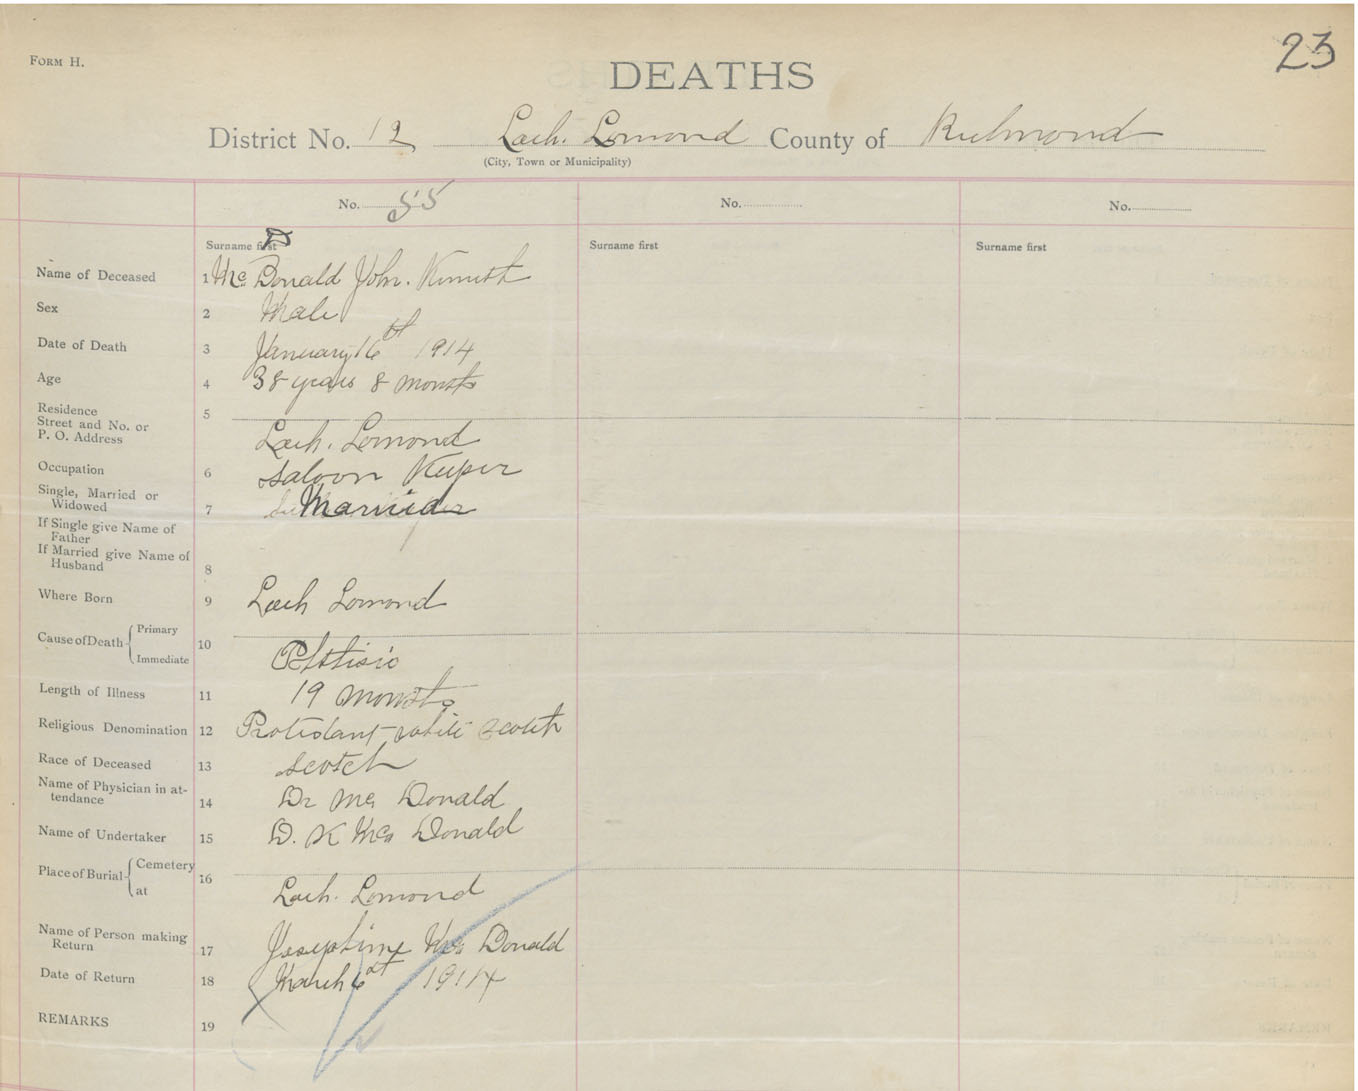 FORM H.
23
DEATHS
District No. 12 Loch. Lomond County of Richmond
(City, Town or Municipality)
No. 55 No. No.
Surname first Surname first Surname first
Name of Deceased 1 McDonald John. Kennith
Sex 2 Male
Date of Death 3 January 16th 1914
Age 4 38 years 8 months
Residence
Street and No. or
P. O. Address 5 Loch. Lomond
Occupation 6 Saloon Keeper
Single, Married or
Widowed 7 Married
If Single give Name of
Father
If Married give Name of
Husband 8
Where Born 9 Loch Lomond
Cause of Death Primary 10
Immediate Phthisic
Length of Illness 11 19 months
Religious Denomination 12 Protestant - white Scotch
Race of Deceased 13 Scotch
Name of Physician in at-
tendance 14 Dr Mc Donald
Name of Undertaker 15 D. K Mc Donald
Place of Burial Cemetery 16
at Loch. Lomond
Name of Person making
Return 17 Josephine Mc Donald
Date of Return 18 March 6 1914
REMARKS 19